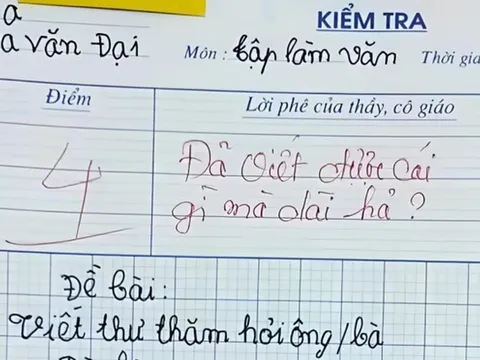 a
KIỂM TRA
a văn Đại
Môn : tập làm văn
Thời gia
Điểm
Lời phê của thầy, cô giáo
4
Đã viết được cái
gì mà dài hả ?
Đề bài :
viết thư thăm hỏi ông/bà